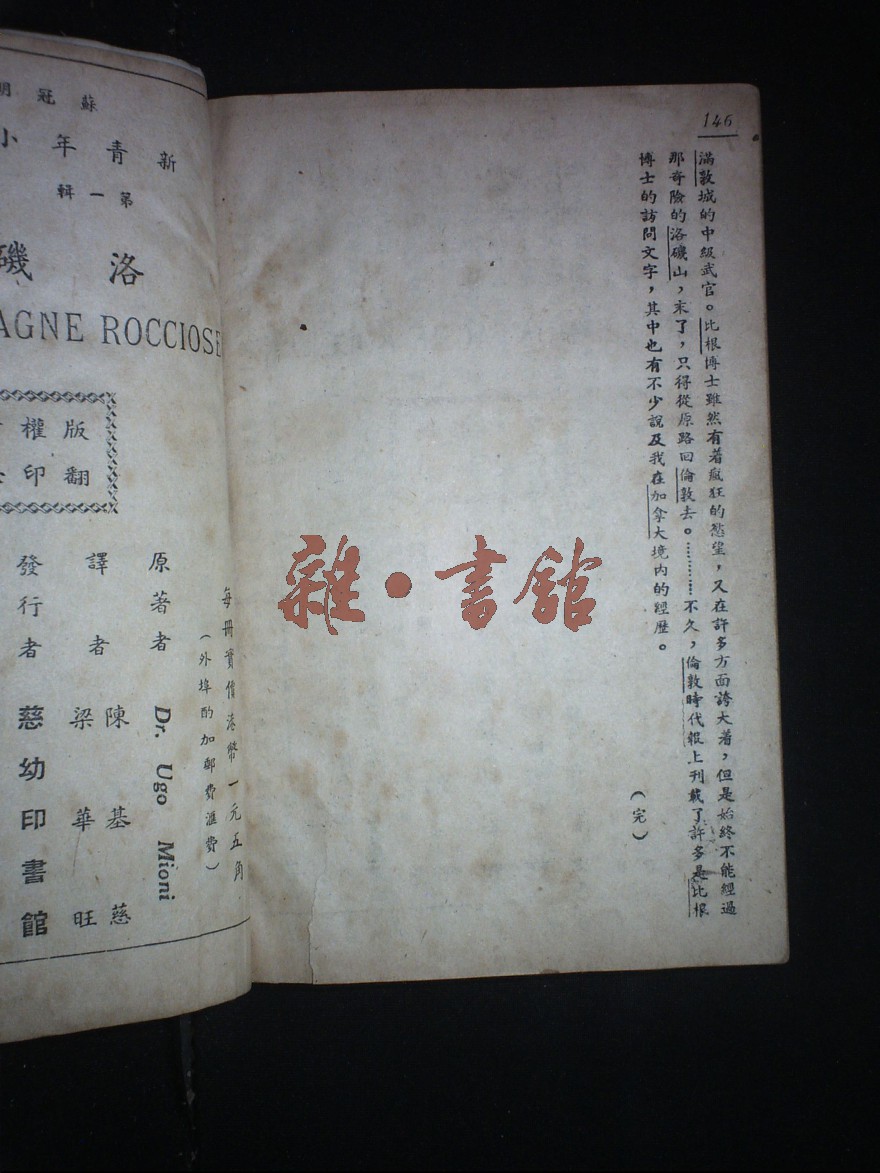 146
滿敦城的中級武官。比根博士雖然有着瘋狂的慾望，又在許多方面誇大着，但是始終不能經過
那奇險的洛磯山，末了，只得從原路回倫敦去。…………不久，倫敦時代報上刊載了許多是比根
博士的訪問文字，其中也有不少說及我在加拿大境內的經歷。
（完）
雜·書館
蘇冠明
新青年小
第一輯
洛磯
AGNE ROCCIOSE
版權
翻印
每冊實價港幣一元五角
（外埠酌加郵費滙費）
原著者 Dr. Ugo Mioni
譯者 陳基慈
梁華旺
發行者 慈幼印書館